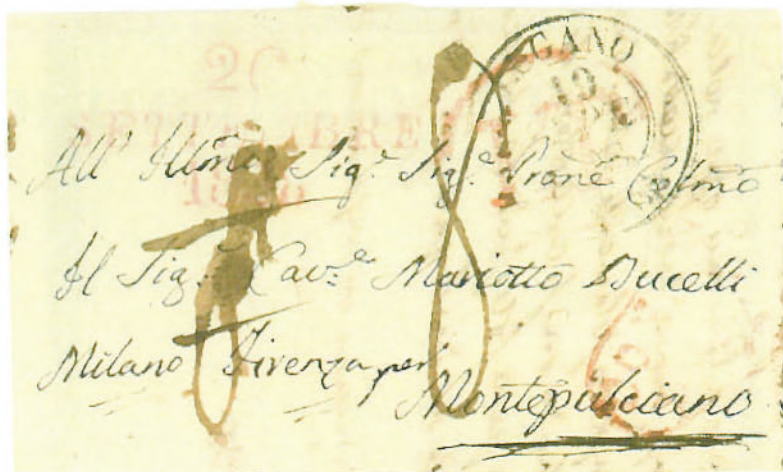 LUGANO
19
20
SETTEMBRE
18
All' Illmo Sig.e Sig.e Prone Colmo
Il Sig.e Cav.e Mariotto Bucelli
Milano Firenza per
Montepulciano